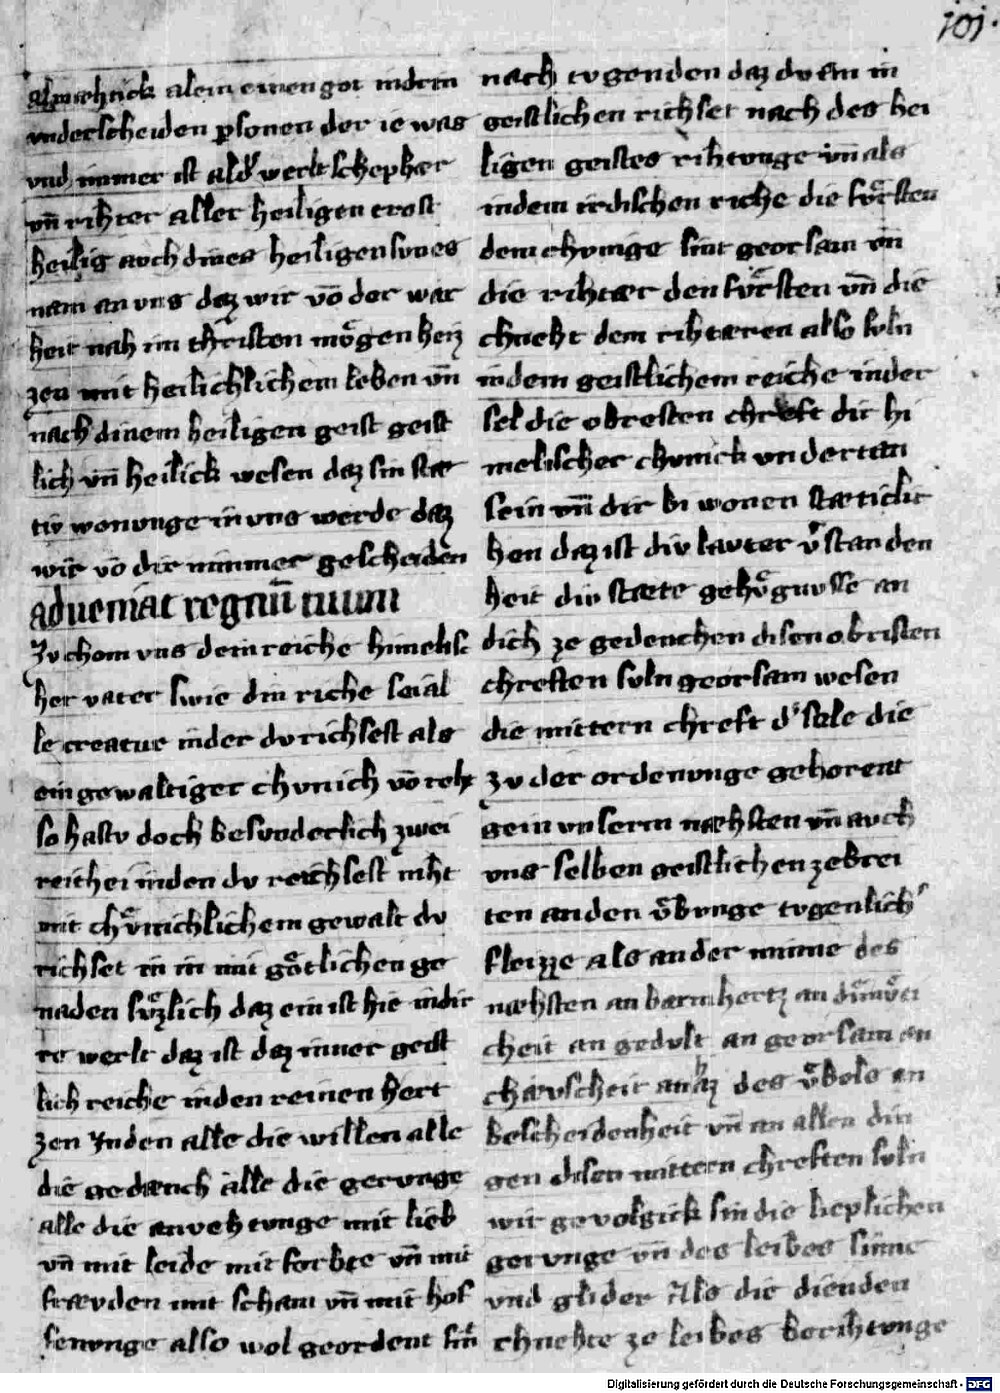 101.
almæhtick alein einen got in drin
vnderscheiden psonen der ie was
vnd immer ist al d' werlt schephær
vn̄ rihter aller heiligen trost
heilig auch dines heiligen svnes
nam an vns daz wir vō der war
heit nah im christen mv̊gen heiz
zen mit heilichlichem leben vn̄
nach dinem heiligen geist geist
lich vn̄ heilick wesen daz sin stæ
tiv wonvnge in vns werde daz
wir vō dir nimmer gescheiden
adueniat regnū tuum
Zv chom vns dein reiche himelisc
her vater swie din riche sei al
le creatur in der dv richsest als
ein gewaltiger chvnich vō reht
so hastv doch besvnderlich zwei
reiche in den dv reichsest niht
mit chv̊nichlichem gewalt dv
richset in in mit gȯtlichen ge
naden sv̊zlich daz ein ist hie in dir
re werlt daz ist daz inner geist
lich reiche in den reinen hert
zen Jn den alle die willen alle
die gedænch alle die gervnge
alle die anvehtvnge mit lieb
vn̄ mit leide mit forhte vn̄ mit
frævden mit scham vn̄ mit hof
fenvnge also wol geordent sin
nach tvgenden daz dv em in
geistlichen richset nach des hei
ligen geistes rihtvnge vn̄ als
in dem irdischen riche die fv̊rsten
dem chvnige sint georsam vn̄
die rihtær den fv̊rsten vn̄ die
chneht dem rihtæren also svln
in dem geistlichem reiche in der
sel die obresten chreft dir hi
melischer chvnick vndertan
sein vn̄ dir bi wonen stæticli
hen daz ist div lavter v'standen
heit div stæte gehv̊gnvsse an
dich ze gedenchen disen obristen
chreften svln georsam wesen
die mittern chreft d' sele die
zv der ordenvnge gehorent
gein vnserm næhsten vn̄ avch
vns selben geistlichen zebrei
ten an den v̊bvnge tvgenlich'
fleizze als an der minne des
næhsten an barmhertz an
cheit an gedvlt an georsam an
chævscheit an haz des v̊bels an
bescheidenheit vn̄ an allen din
gen disen mittern chreften svln
wir gevolgick sin die lieplichen
gervnge vn̄ des leibes sinne
vnd glider Als die dienden
chnehte ze leibes berihtvnge
Digitalisierung gefördert durch die Deutsche Forschungsgemeinschaft - DFG